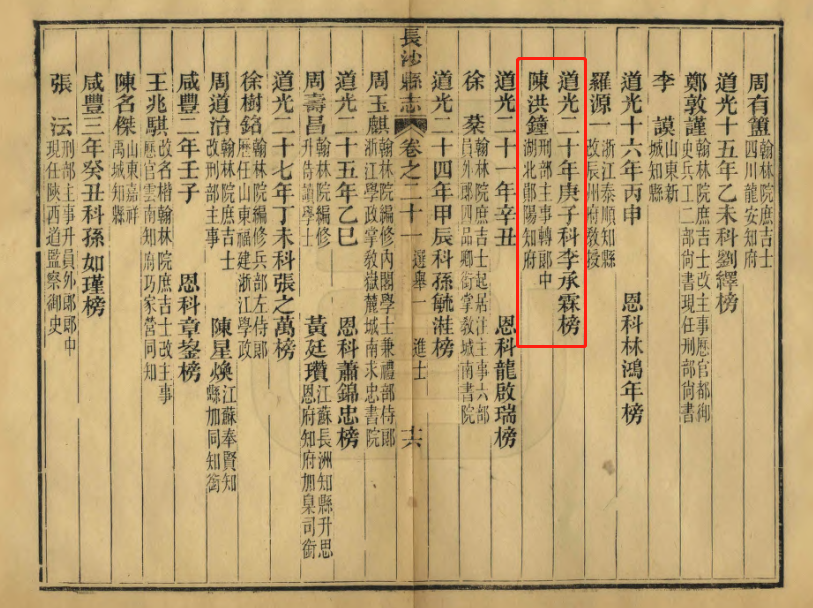 周有簠翰林院庶吉士
四川龍安知府
道光十五年乙未科劉繹榜
鄭敦謹翰林院庶吉士改主事歷官都御
史兵工二部尚書現任刑部尚書
李 謨山東新
城知縣
道光十六年丙申 恩科林鴻年榜
羅源一浙江泰順知縣
改辰州府教授
道光二十年庚子科李承霖榜
陳洪鐘刑部主事轉郎中
湖北鄖陽知府
道光二十一年辛丑 恩科龍啟瑞榜
徐 棻翰林院庶吉士起居注主事六部
員外郎四品卿銜掌教城南書院
道光二十四年甲辰科孫毓溎榜
長沙縣志 卷之二十一 選舉一 進士 十六
周玉麒翰林院編修內閣學士兼禮部侍郎
浙江學政掌教嶽麓城南求忠書院
道光二十五年乙巳 恩科蕭錦忠榜
周壽昌翰林院編修
升侍讀學士 黃廷瓚江蘇長洲知縣升思
恩府知府加臬司銜
道光二十七年丁未科張之萬榜
徐樹銘翰林院編修兵部左侍郎
歷任山東福建浙江學政
周道治翰林院庶吉士
改刑部主事 陳星煥江蘇奉賢知
縣加同知銜
咸豐二年壬子 恩科章鋆榜
王兆騏改名楷翰林院庶吉士改主事
歷官雲南知府巧家營同知
陳名傑山東嘉祥
禹城知縣
咸豐三年癸丑科孫如瑾榜
張 沄刑部主事升員外郎郎中
現任陝西道監察御史